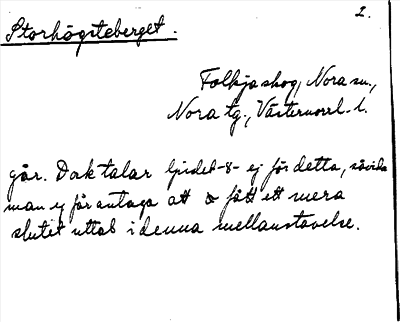 2.
Storhögsteberget.
Folkjaskog, Nora sn.,
Nora tg., Västernorrl. l.
går. Dok talar ljudet -8- ej för detta, såvida
man ej får antaga att 8 fått ett mera
slutet uttal i denna mellanstavelse.